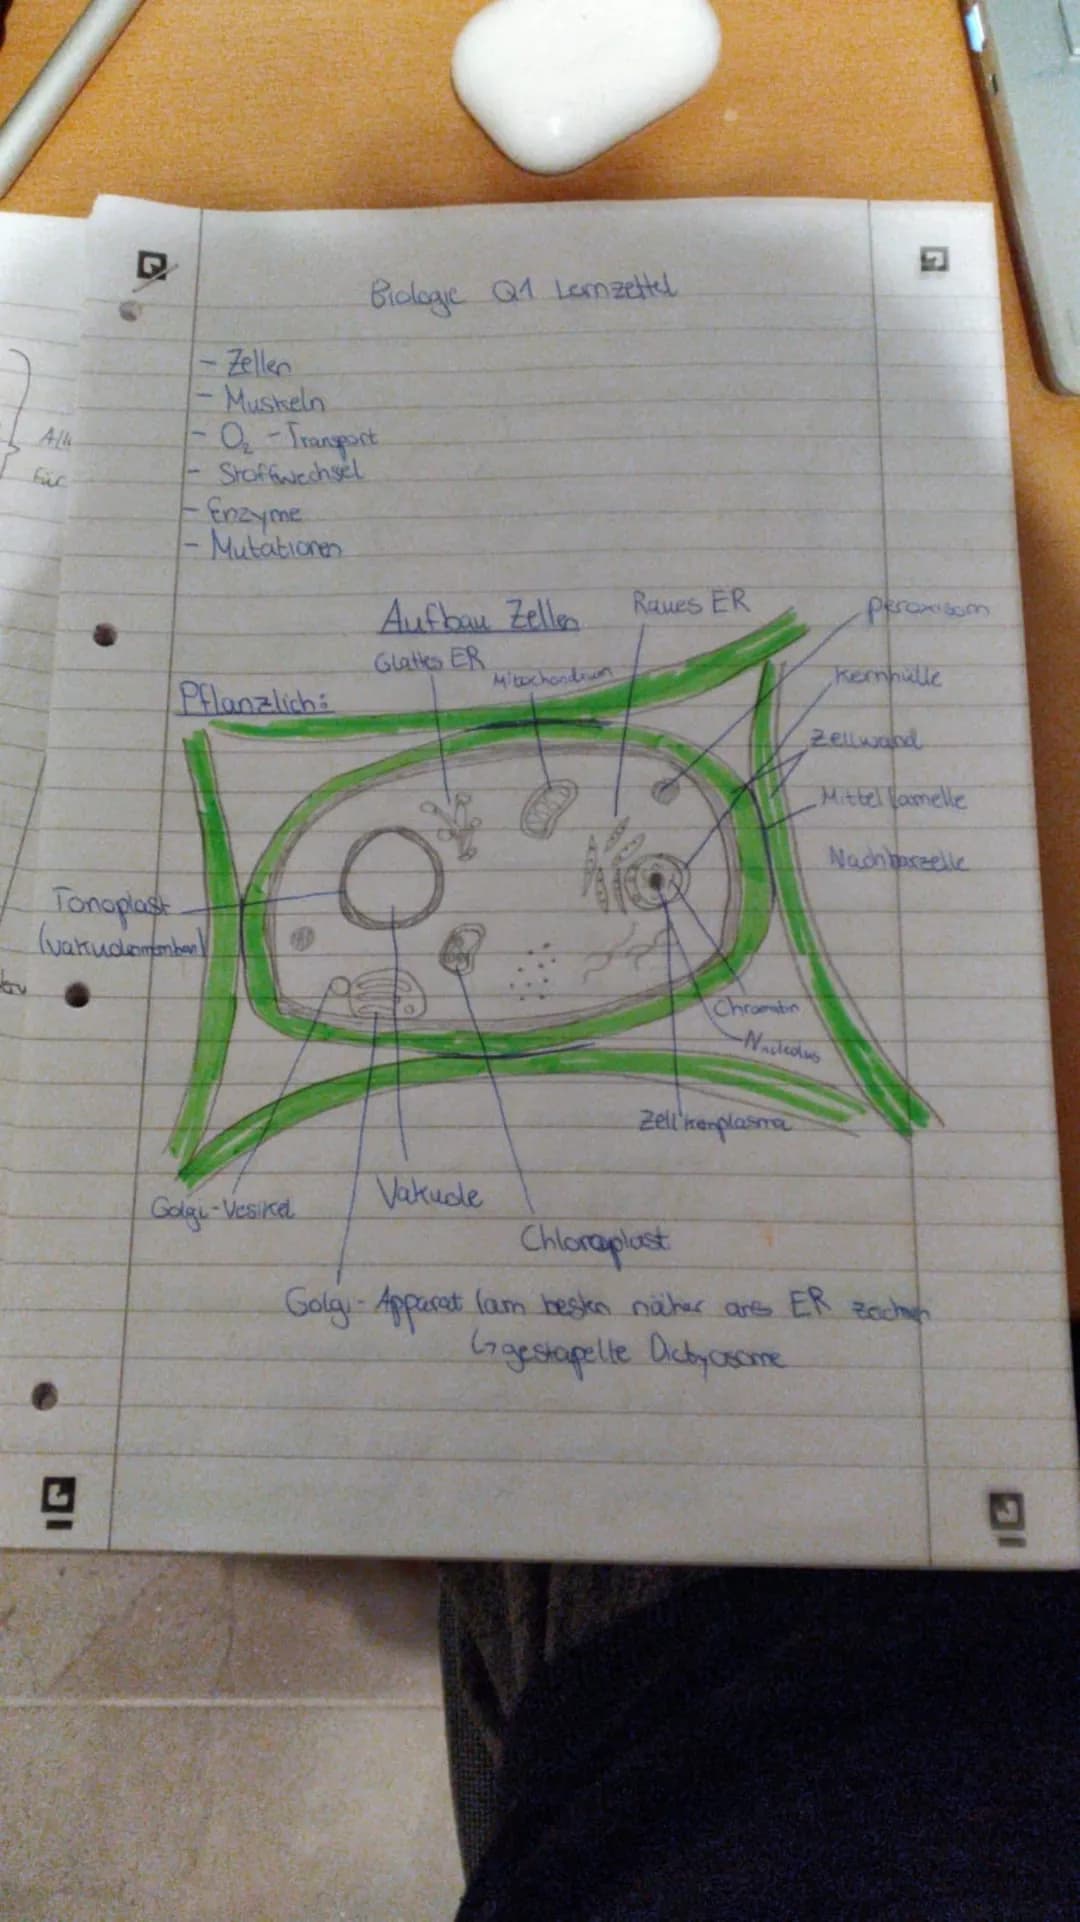 Biologie Q1 Lernzettel
- Zellen
- Muskeln
- O₂ - Transport
- Stoffwechsel
- Enzyme
- Mutationen
Alle
Für
Aufbau Zellen
Raues ER
Peroxisom
Glattes ER
Mitochondrium
Kernhülle
Pflanzlich:
Zellwand
Mittellamelle
Nachbarzelle
Tonoplast
(Vakuolenmembran)
Chromatin
Nucleolus
Zellkernplasma
Golgi-Vesikel
Vakuole
Chloroplast
Golgi-Apparat (am besten näher ans ER
↳ gestapelte Dictyosome